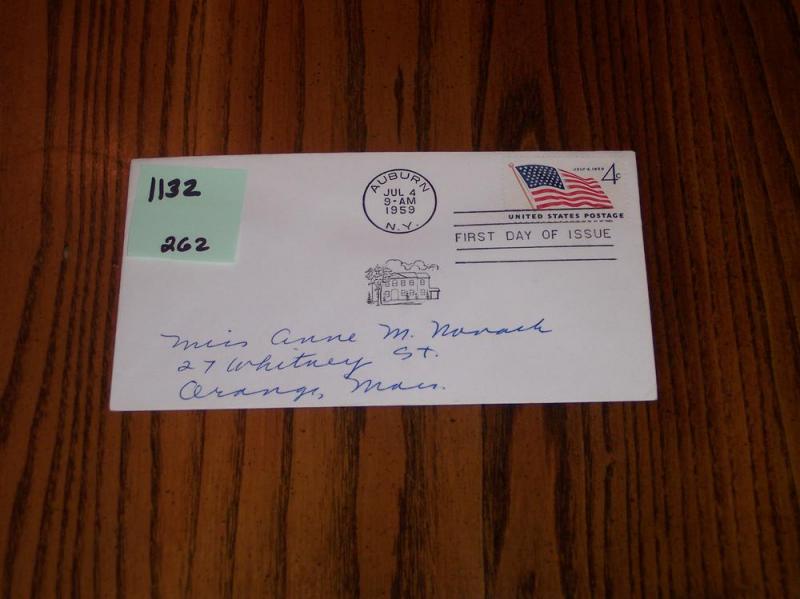 1132
262
AUBURN
JUL 4
9-AM
1959
N.Y.
JULY 4, 1959
4c
UNITED STATES POSTAGE
FIRST DAY OF ISSUE
Miss Anne M. Novack
27 Whitney St.
Orange, Mass.